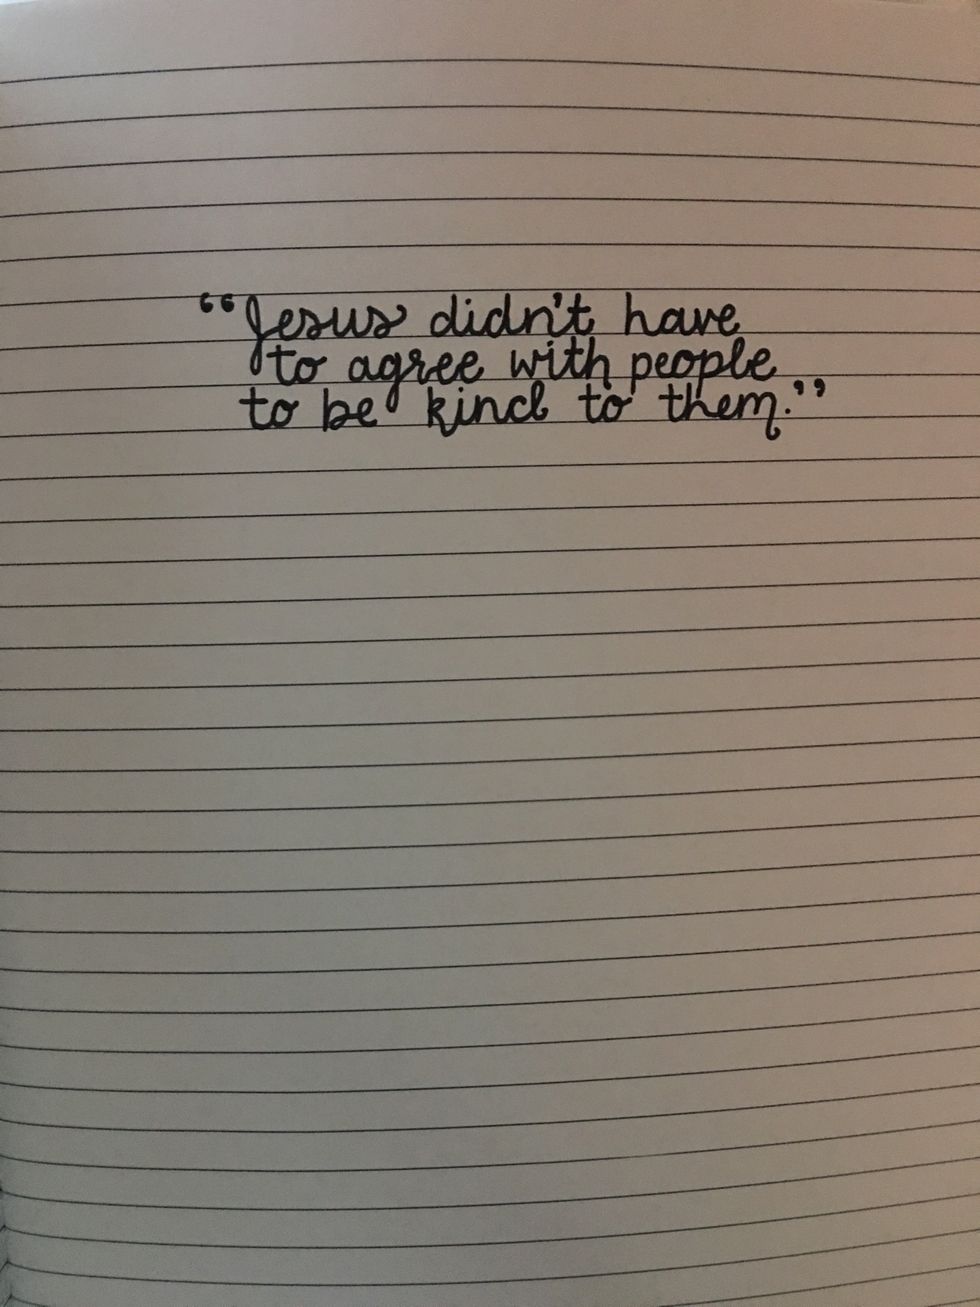 “Jesus didn't have
to agree with people
to be kind to them.”